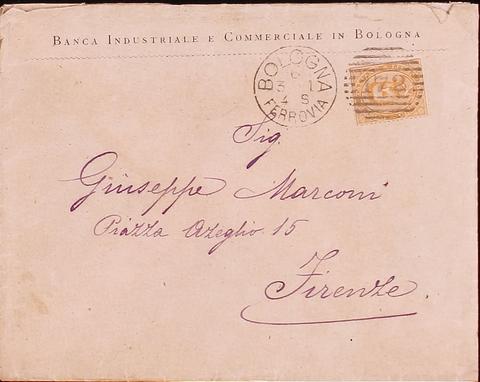 BANCA INDUSTRIALE E COMMERCIALE IN BOLOGNA
BOLOGNA
6
FERROVIA
Sig.
Giuseppe Marconi
Piazza Azeglio 15
Firenze